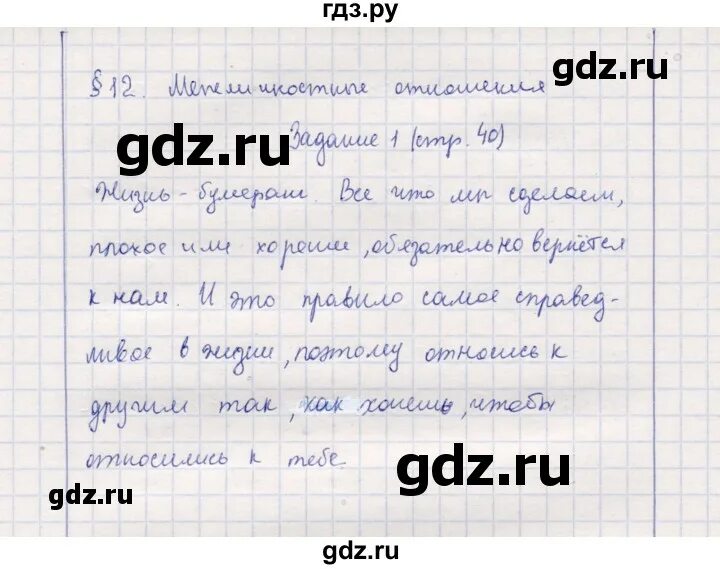 гдз.ру
§12. Межличностные отношения
gdz.ru
gdz.ru
Задание 1 (стр. 40)
Жизнь - бумеранг. Все что мы сделаем,
плохое или хорошее, обязательно вернётся
к нам. И это правило самое справед-
ливое в жизни, поэтому относись к
другим так, как хочешь, чтобы
относились к тебе
gdz.ru
gdz.ru
gdz.ru